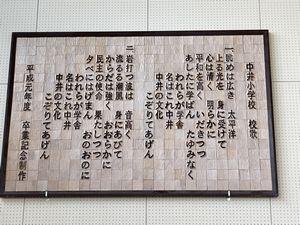 中井小学校 校歌
一、眺めは広き 太平洋
上る光を 身に受けて
心は清く 明らかに
平和を高く いだきつつ
あしたに学ばん たゆみなく
われらが学舎
名はこれ中井
中井の文化
こぞりてあげん
二、岩打つ波は 音高く
流るる潮風 身にあびて
からだは強く おおらかに
民主の使命 果たしつつ
夕べにはげまん おのおのに
われらが学舎
名はこれ中井
中井の文化
こぞりてあげん
平成元年度 卒業記念制作